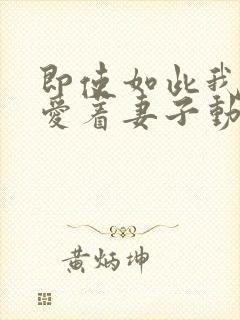 即使如此我
愛着妻子動
黄炳坤